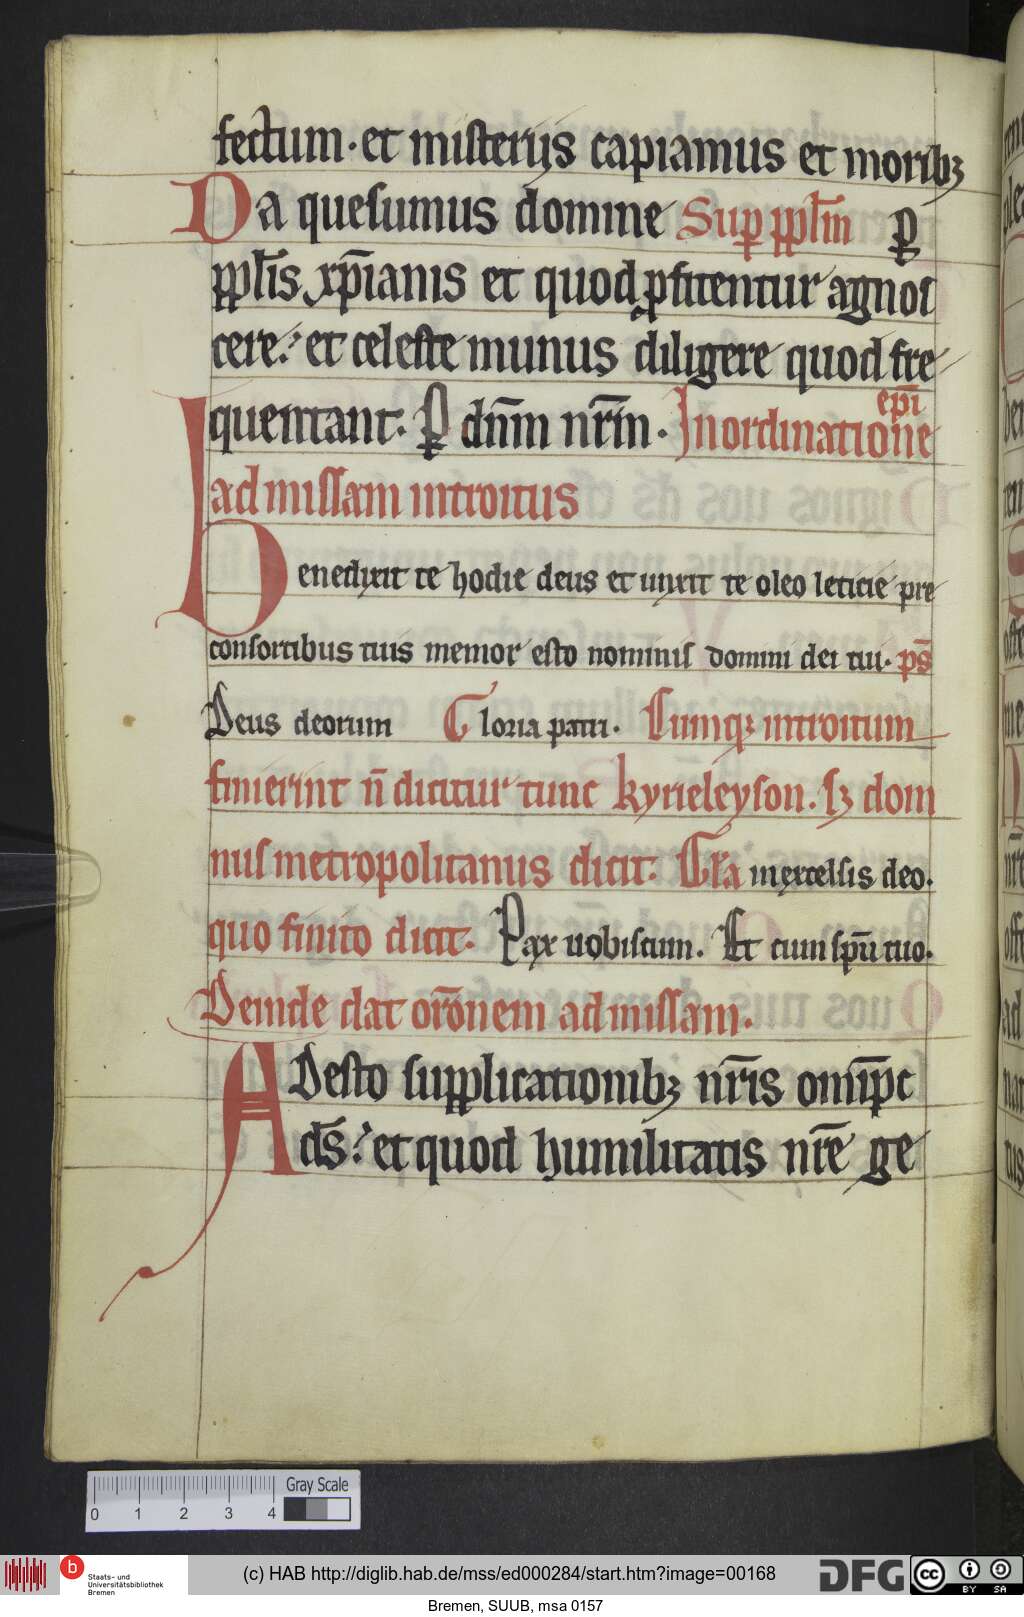 fectum · et misterijs capiamus et moribꝫ
Da quesumus domine Sup ppl̄m ꝑ
ppl̄is xp̄ianis et quod ꝓfitentur agnos
cere. et celeste munus diligere quod fre
quentant. P dn̄m nr̄m. In ordinatione ep̄i
ad missam introitus
Benedixit te hodie deus et unxit te oleo leticie pre
consortibus tuis memor esto nominis domini dei tui. ps̄
Deus deorum Gloria patri. Cumqꝫ introitum
finierint n̄ dicitur tunc kyrieleyson. sꝫ dom
nus metropolitanus dicit. Gl̄a in excelsis deo.
quo finito dicit. Pax uobiscum. Et cum sp̄u tuo.
Deinde dat or̄onem ad missam.
ADesto supplicationibꝫ nr̄is om̄ip̄c
ds̄. et quod humilitatis nr̄e ge
0 1 2 3 4
Gray Scale
b Staats- und
Universitätsbibliothek
Bremen
(c) HAB http://diglib.hab.de/mss/ed000284/start.htm?image=00168
DFG
cc BY SA
Bremen, SUUB, msa 0157